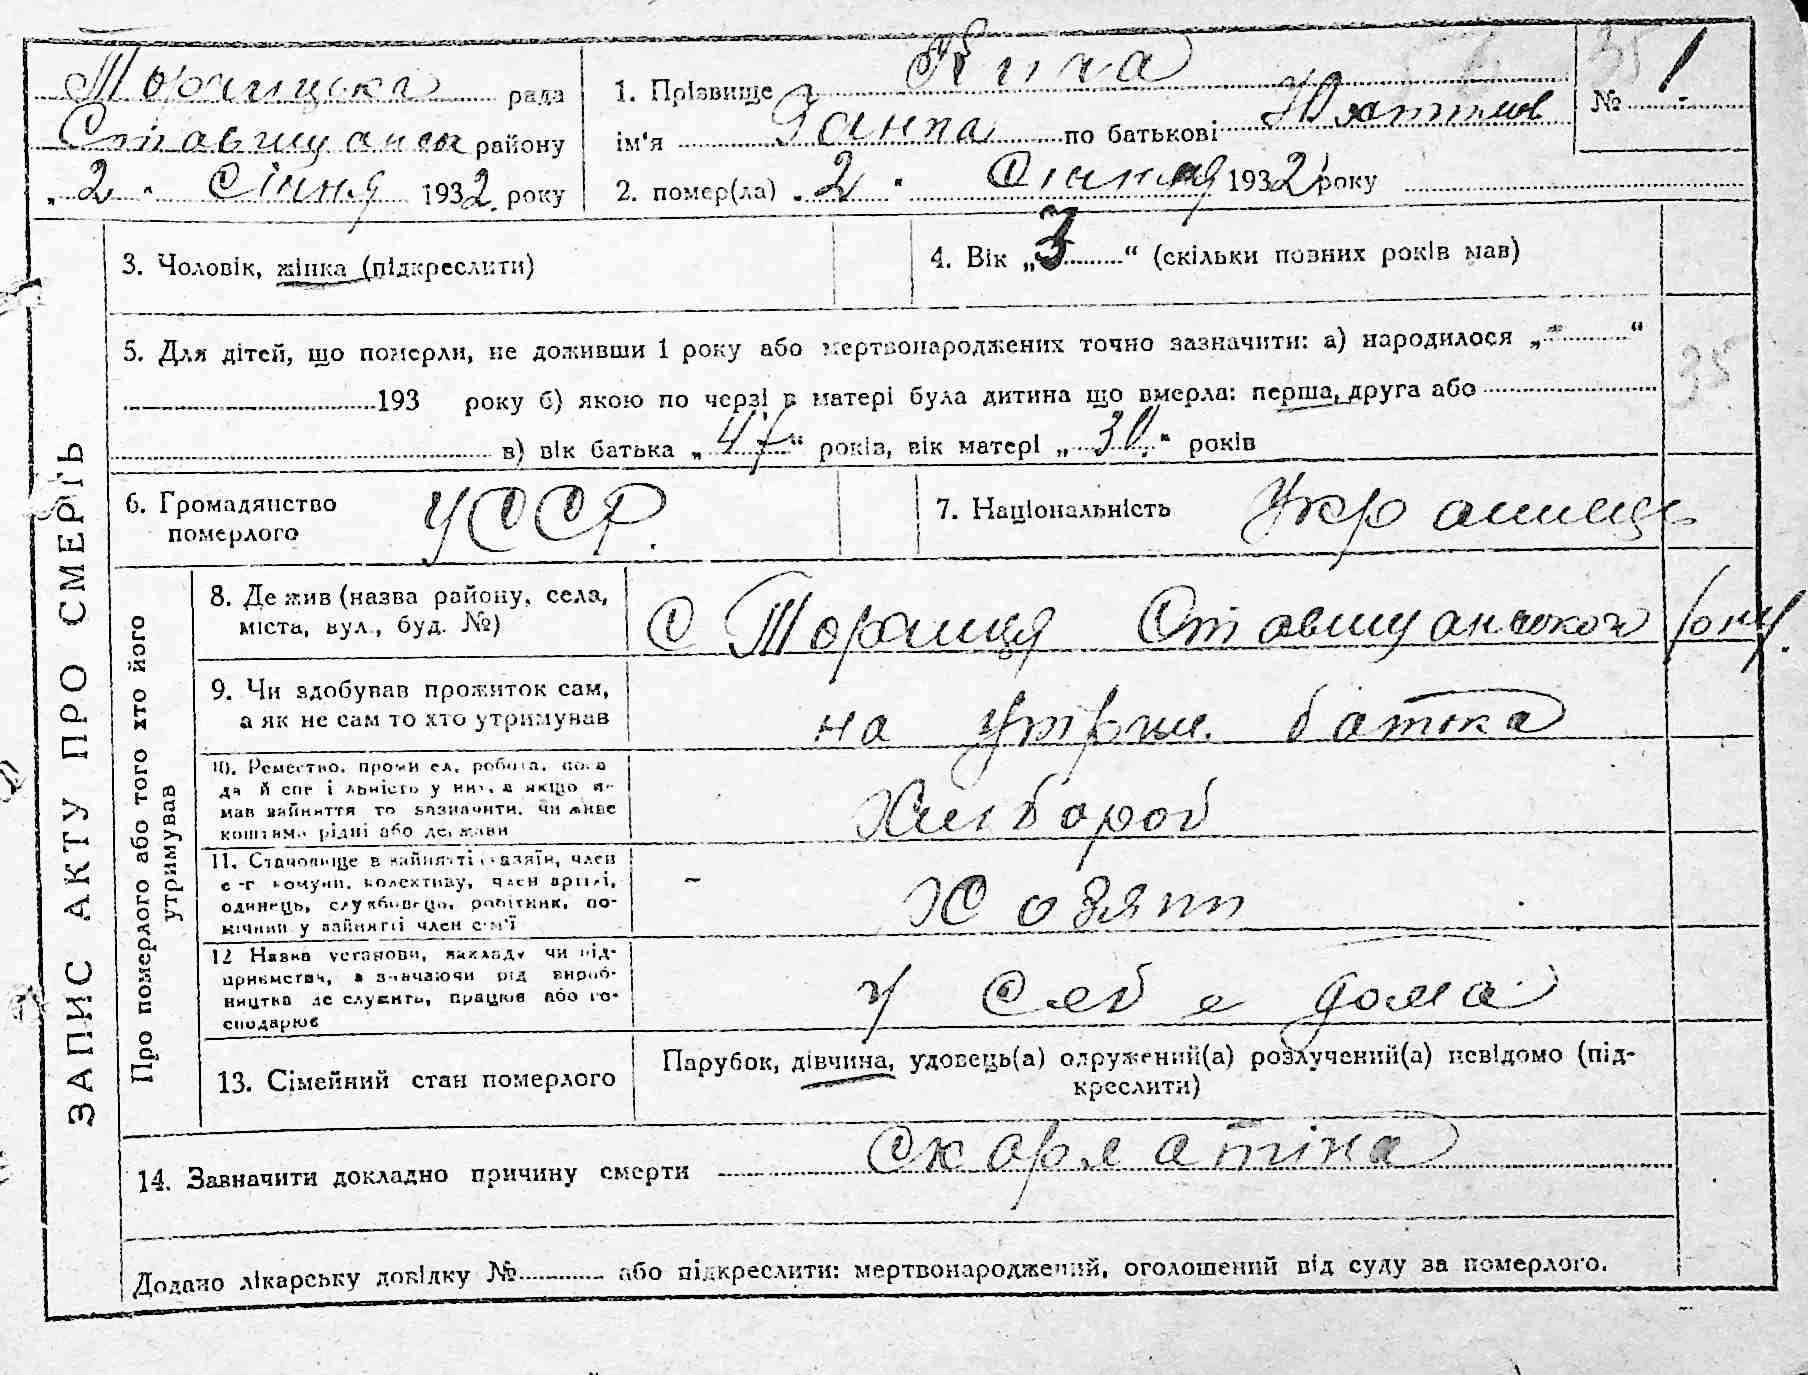 ЗАПИС АКТУ ПРО СМЕРТЬ
рада
Ставищанськ району
„2“ Січня 1932 року
1. Прізвище
№ 1
ім'я Ганна по батькові
2. помер(ла) „2“ Січня 1932 року
3. Чоловік, жінка (підкреслити)
4. Вік „3“ (скільки повних років мав)
5. Для дітей, що померли, не доживши 1 року або мертвонароджених точно зазначити: а) народилося „-“
193 року б) якою по черзі в матері була дитина що вмерла: перша, друга або
в) вік батька „47“ років, вік матері „30“ років
6. Громадянство
померлого
УССР.
7. Національність Українець
Про померлого або того хто його
утримував
8. Де жив (назва району, села,
міста, вул., буд. №)
с Торчиця Ставищанського
9. Чи здобував прожиток сам,
а як не сам то хто утримував
на утрим. батька
10. Ремество, промисел, робота, поса
да й спеціальність у них, а якщо не
мав зайняття то зазначити, чи живе
коштами рідні або держави
Хлибороб
11. Становище в зайнятті хазяїн, член
с-г комуни, колективу, член артілі,
одинець, службовець, робітник, по-
мічний у зайнятті член сем'ї
- Хозяїн
12 Назва установи, закладу чи під-
приємства, зазначаючи рід вироб-
ництва де служить, працює або го-
сподарює
у себе дома
13. Сімейний стан померлого
Парубок, дівчина, удовець(а) одружений(а) розлучений(а) невідомо (під-
креслити)
14. Зазначити докладно причину смерти Скарлатіна
Додано лікарську довідку № або підкреслити: мертвонароджений, оголошений від суду за померлого.
35